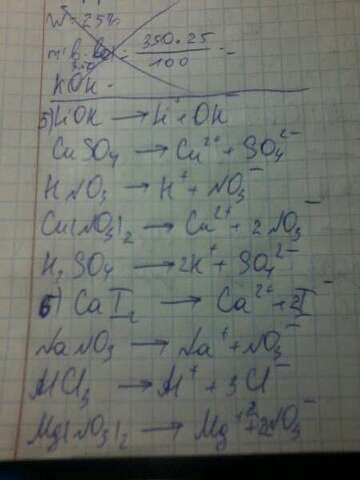 W = 25%
350·25
100
KOH -
5) KOH → H⁺ + OH⁻
CuSO₄ → Cu²⁺ + SO₄²⁻
HNO₃ → H⁺ + NO₃⁻
Cu(NO₃)₂ → Cu²⁺ + 2NO₃⁻
H₂SO₄ → 2H⁺ + SO₄²⁻
6) CaI₂ → Ca²⁺ + 2I⁻
NaNO₃ → Na⁺ + NO₃⁻
AlCl₃ → Al⁺ + 3Cl⁻
Mg(NO₃)₂ → Mg⁺² + 2NO₃⁻